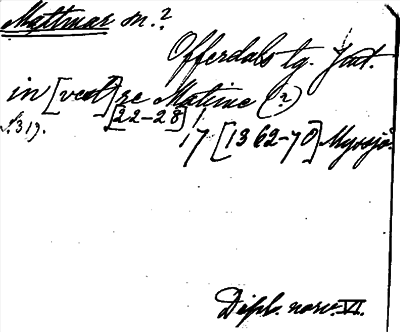 Mattmar m.?
Offerdals tg. Jmt.
in [vest]re Matme (?)
s. 319. [22-28] 17 [1362-70] Myssjö.
Dipl. norv. VI.